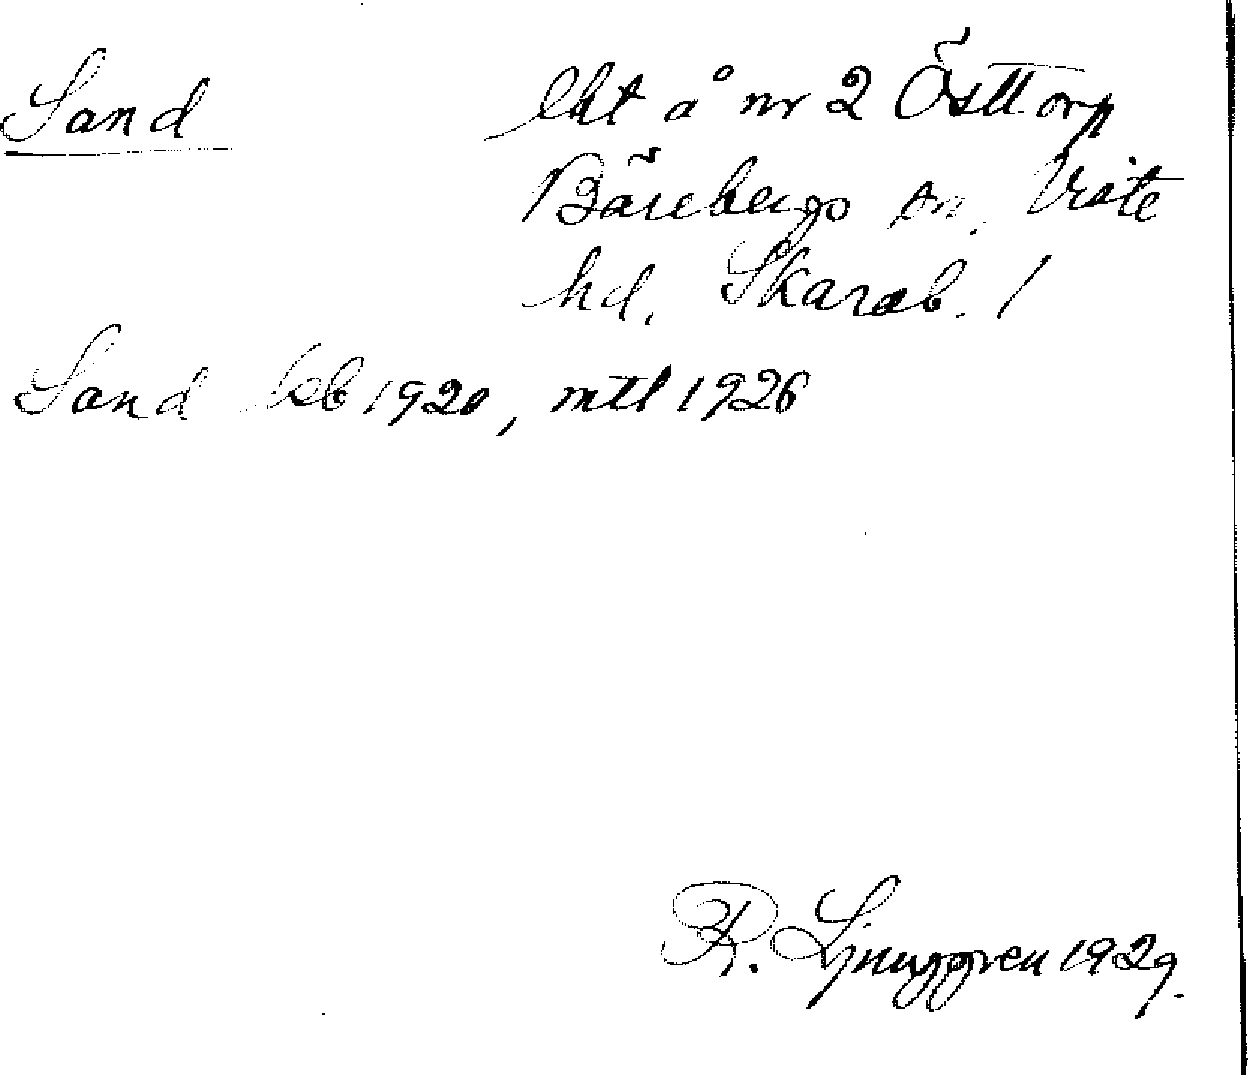 Sand lht å nr 2 Östtorp
Bärebergs sn. Viste
hd. Skarab. l
Sand kb 1920, mtl 1926
R. Ljunggren 1929.